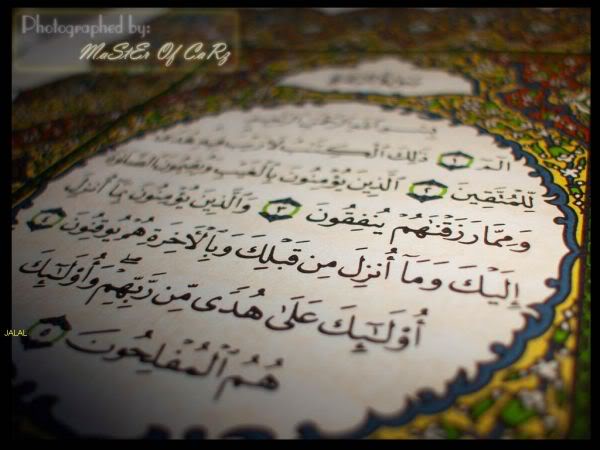 Photographed by:
MaStEr Of CaRz
بِسْمِ ٱللَّهِ ٱلرَّحْمَـٰنِ ٱلرَّحِيمِ
الٓمٓ ١ ذَٰلِكَ ٱلْكِتَـٰبُ لَا رَيْبَ فِيهِ هُدًى
لِّلْمُتَّقِينَ ٢ ٱلَّذِينَ يُؤْمِنُونَ بِٱلْغَيْبِ وَيُقِيمُونَ ٱلصَّلَوٰةَ
وَمِمَّا رَزَقْنَـٰهُمْ يُنفِقُونَ ٣ وَٱلَّذِينَ يُؤْمِنُونَ بِمَآ أُنزِلَ
إِلَيْكَ وَمَآ أُنزِلَ مِن قَبْلِكَ وَبِٱلْـَٔاخِرَةِ هُمْ يُوقِنُونَ ٤
أُو۟لَـٰٓئِكَ عَلَىٰ هُدًى مِّن رَّبِّهِمْ ۖ وَأُو۟لَـٰٓئِكَ
هُمُ ٱلْمُفْلِحُونَ ٥
JALAL